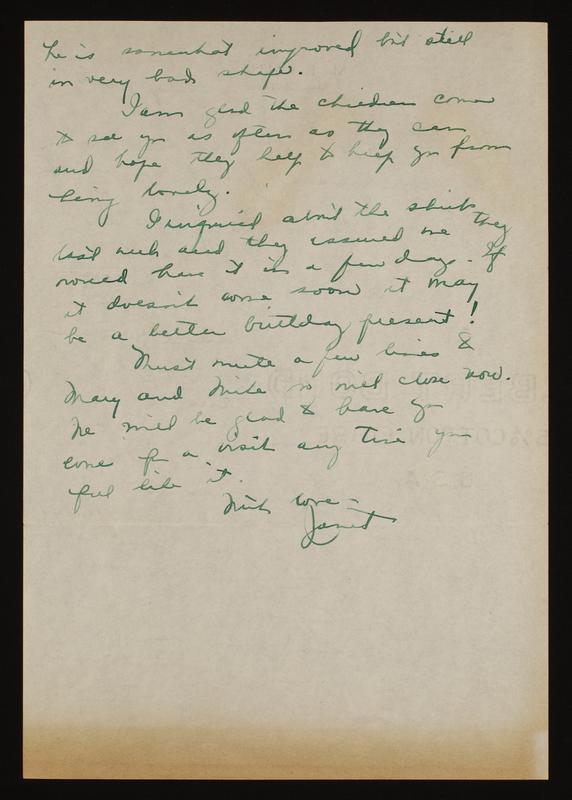 he is somewhat improved but still
in very bad shape.
I am glad the children come
to see you as often as they can
and hope they help to keep you from
being lonely.
I inquired about the
last week and they assured me they
would have it in a few days. If
it doesn't come soon it may
be a better birthday present!
Must write a few lines to
Mary and Mike so will close now.
We will be glad to have you
come for a visit any time you
feel like it.
With love -
Janet